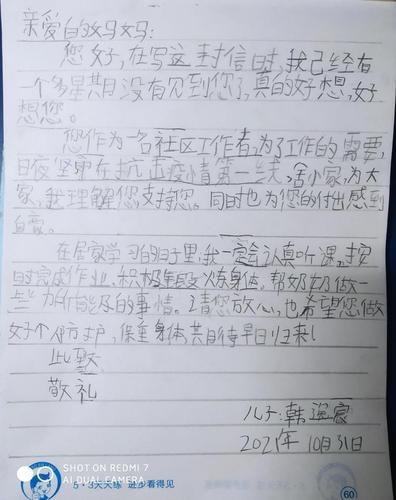 亲爱的妈妈:
您好,在写这封信时,我已经有
一个多星期没有见到您了,真的好想,好
想您。
您作为一名社区工作者,为了工作的需要,
日夜坚守在抗击疫情第一线,舍小家,为大
家,我理解您支持您。同时也为您的付出感到
自豪。
在居家学习的日子里,我一定会认真听课。按
时完成作业,积极锻炼身体,帮奶奶做一
些力所能及的事情。请您放心,也希望您做
好个人防护,保重身体,共期待早日归来!
此致
敬礼
儿子:韩
2021年10月31日
SHOT ON REDMI 7
AI DUAL CAMERA
5·3天天练 进步看得见
60